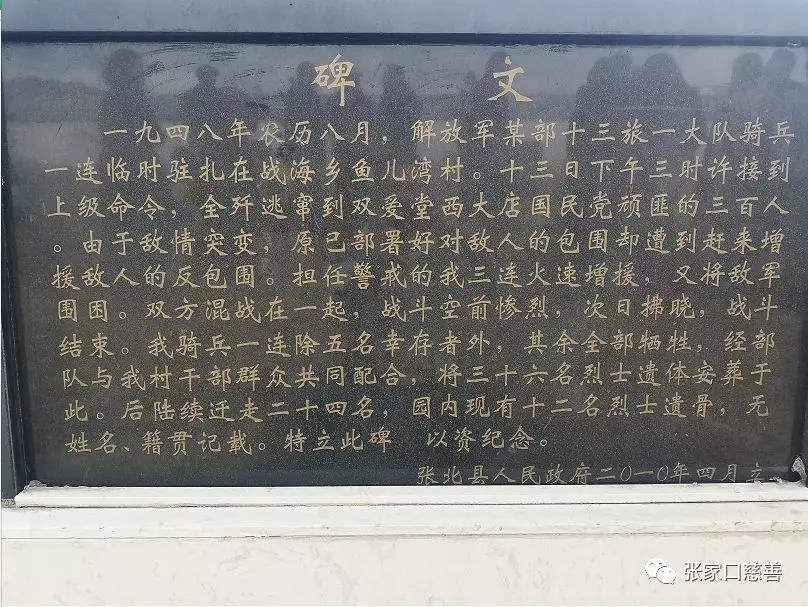 碑文
一九四八年农历八月，解放军某部十三旅一大队骑兵
一连临时驻扎在战海乡鱼儿湾村。十三日下午三时许接到
上级命令，全歼逃窜到双爱堂西大店国民党顽匪的三百人
。由于敌情突变，原已部署好对敌人的包围却遭到赶来增
援敌人的反包围。担任警戒的我三连火速增援，又将敌军
围困。双方混战在一起，战斗空前惨烈，次日拂晓，战斗
结束。我骑兵一连除五名幸存者外，其余全部牺牲，经部
队与我村干部群众共同配合，将三十六名烈士遗体安葬于
此。后陆续迁走二十四名，园内现有十二名烈士遗骨，无
姓名、籍贯记载。特立此碑 以资纪念。
张北县人民政府二〇一〇年四月立
张家口慈善